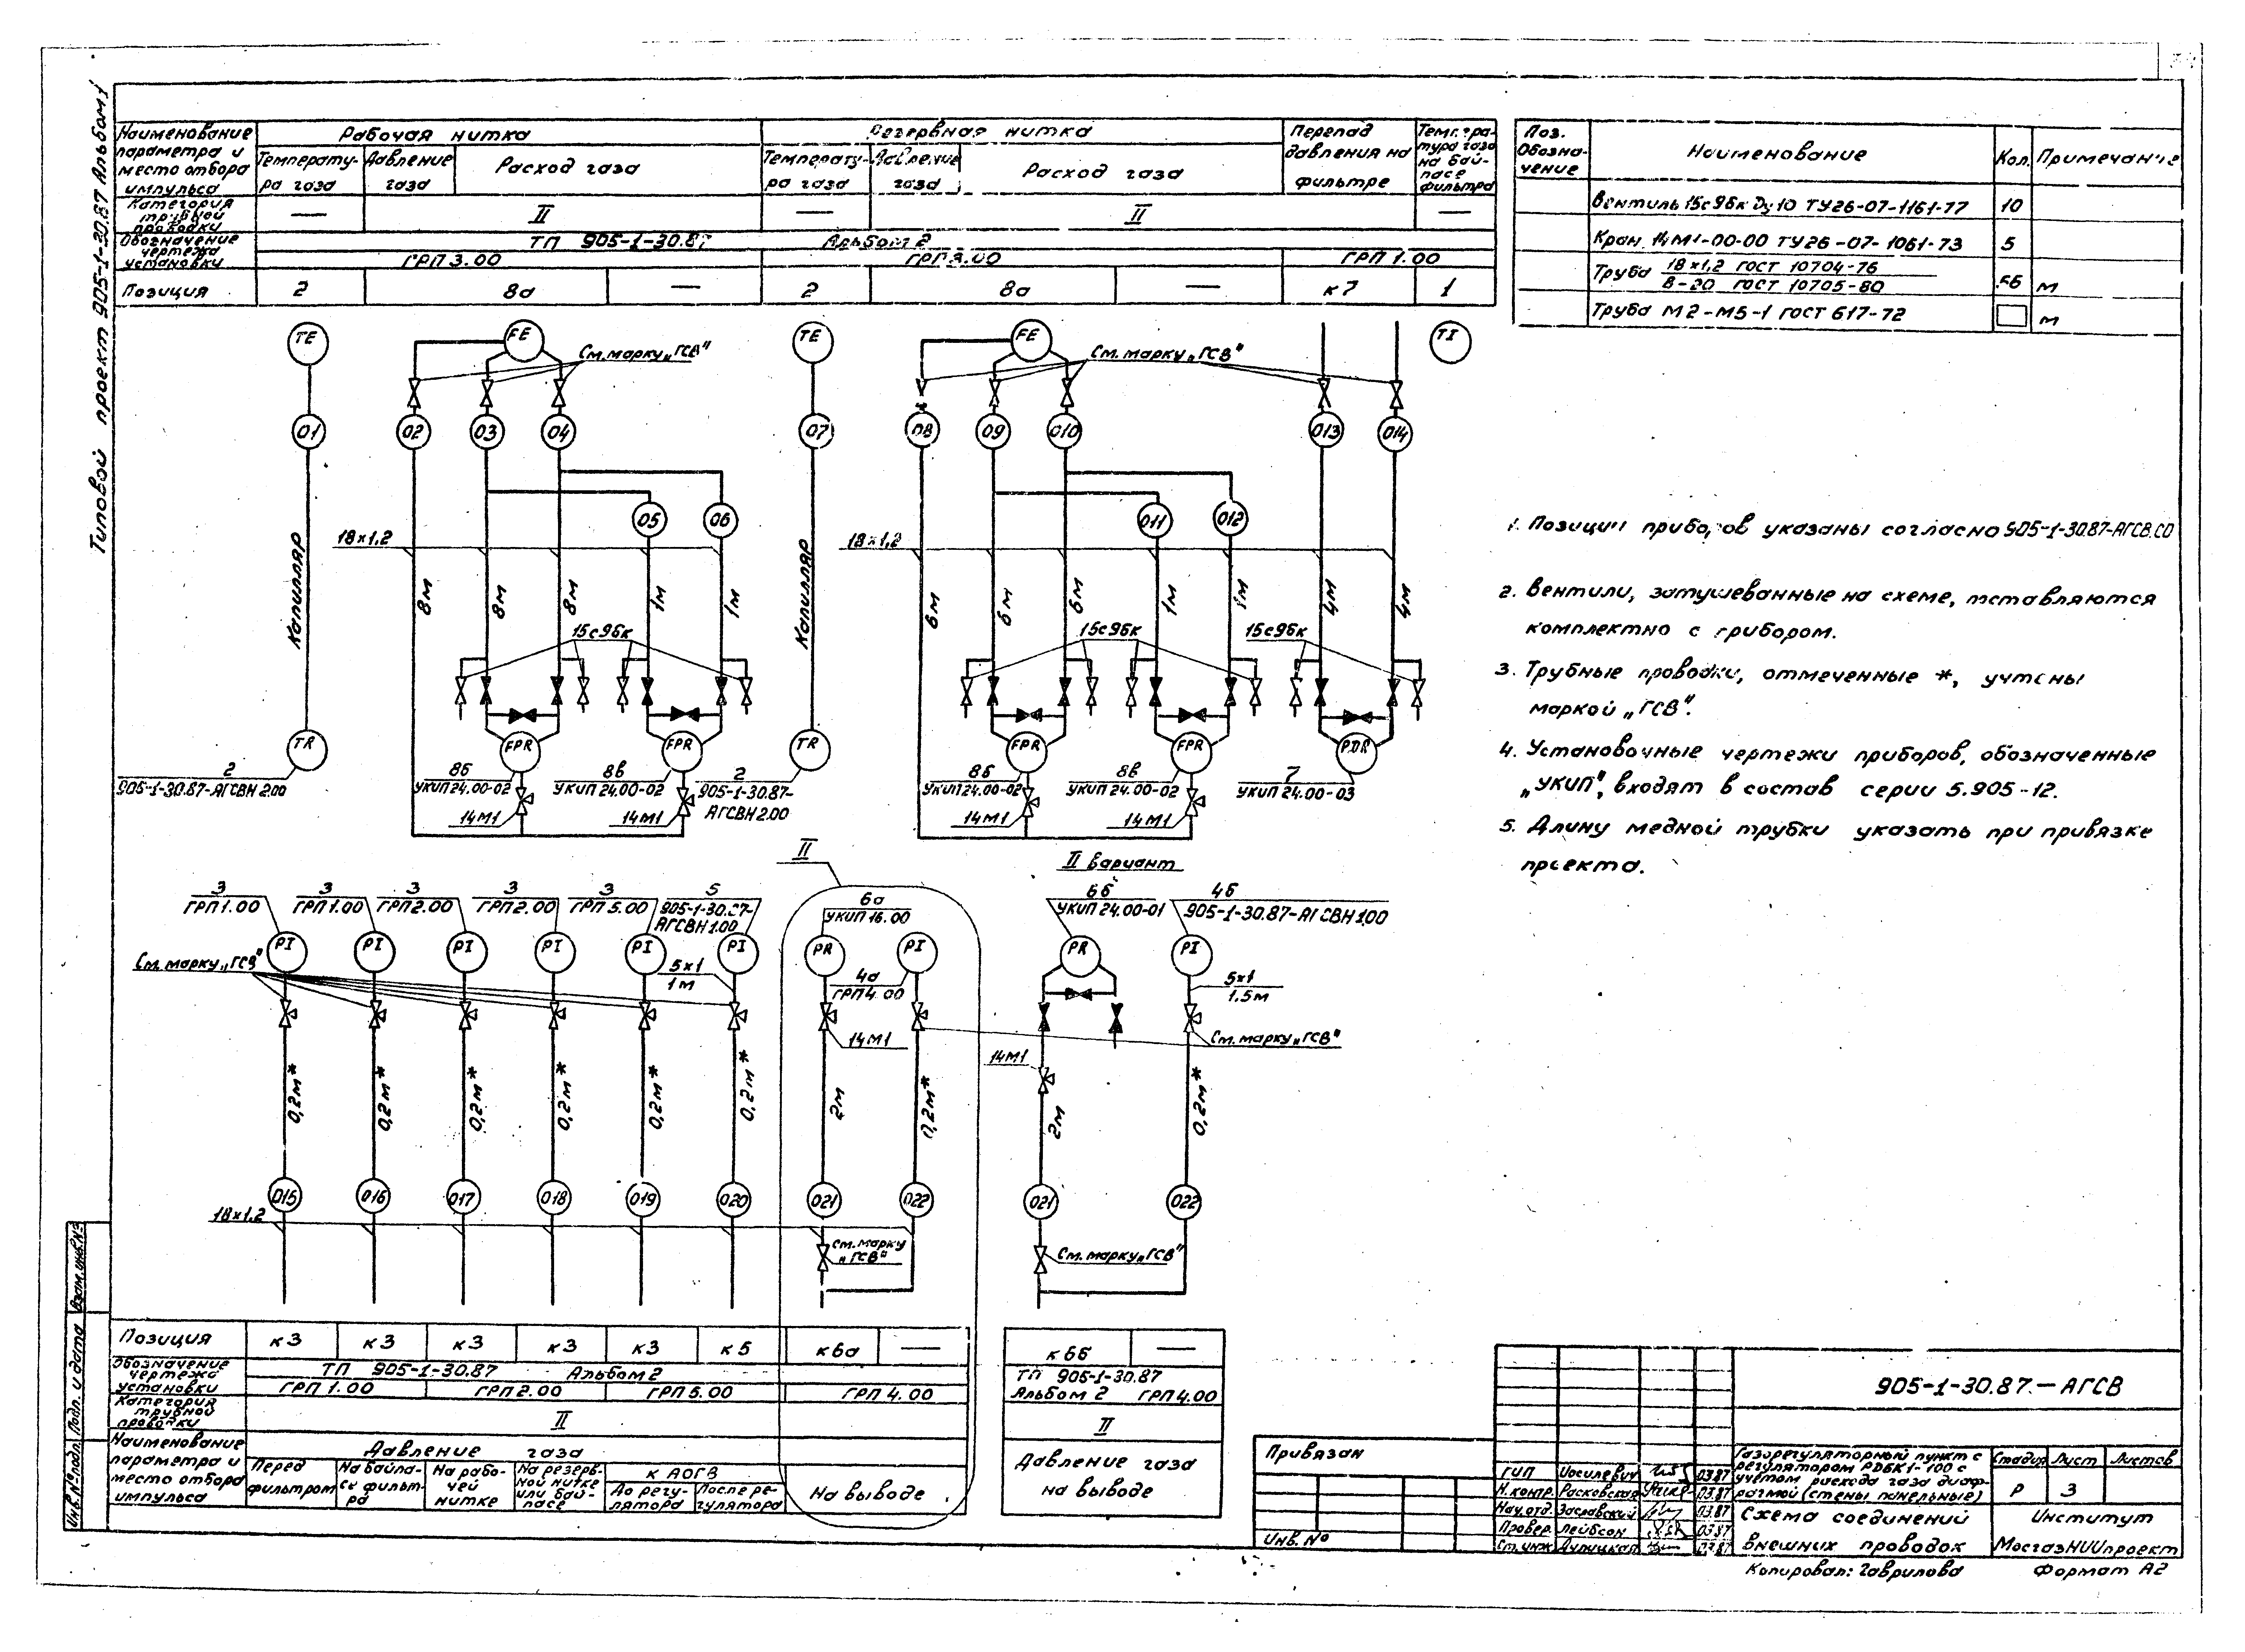 Типовой проект 905-1-30.87 Альбом 1
Наименование параметра и место отбора импульса
Рабочая нитка
Резервная нитка
Перепад давления на фильтре
Температура газа на байпасе фильтра
Температура газа
Давление газа
Расход газа
Температура газа
Давление газа
Расход газа
Категория трубной проводки
—
II
—
II
—
Обозначение чертежа установки
ТП 905-1-30.87 Альбом 2
ГРП 3.00
ГРП 3.00
ГРП 1.00
Позиция
2
8а
—
2
8а
—
к7
1
Поз. Обозначение
Наименование
Кол.
Примечание
Вентиль 15с9бк Ду10 ТУ26-07-1161-77
10
Кран 14М1-00-00 ТУ26-07-1061-73
5
Труба 18×1,2 ГОСТ 10704-76
В-20 ГОСТ 10705-80
66
м
Труба М2-М5-1 ГОСТ 617-72
м
TE
FE
См. марку „ГСВ"
TE
FE
См. марку „ГСВ"
TI
01
02
03
04
07
08
09
010
013
014
05
06
011
012
18×1,2
18×1,2
Капилляр
8м
8м
8м
1м
1м
Капилляр
6м
6м
6м
1м
1м
4м
4м
15с9бк
15с9бк
15с9бк
TR
FPR
FPR
TR
FPR
FPR
PDR
2
905-1-30.87-АГСВН 2.00
8б
УКИП 24.00-02
8в
УКИП 24.00-02
2
905-1-30.87-
АГСВН 2.00
8б
УКИП 24.00-02
8в
УКИП 24.00-02
7
УКИП 24.00-03
14М1
14М1
14М1
14М1
1. Позиции приборов указаны согласно 905-1-30.87-АГСВ.СО
2. Вентили, затушеванные на схеме, поставляются
комплектно с прибором.
3. Трубные проводки, отмеченные *, учтены
маркой „ГСВ".
4. Установочные чертежи приборов, обозначенные
„УКИП", входят в состав серии 5.905-12.
5. Длину медной трубки указать при привязке
проекта.
II
II вариант
3
ГРП 1.00
3
ГРП 1.00
3
ГРП 2.00
3
ГРП 2.00
3
ГРП 5.00
5
905-1-30.87-
АГСВН 1.00
6а
УКИП 16.00
6б
УКИП 24.00-01
4б
905-1-30.87-АГСВН 1.00
PI
PI
PI
PI
PI
PI
PR
PI
PR
PI
См. марку „ГСВ"
5×1
1м
4а
ГРП 4.00
5×1
1.5м
14М1
14М1
См. марку „ГСВ"
0,2м*
0,2м*
0,2м*
0,2м*
0,2м*
0,2м*
2м
0,2м*
2м
0,2м*
015
016
017
018
019
020
021
022
021
022
18×1.2
См. марку
„ГСВ"
См. марку „ГСВ"
Позиция
к3
к3
к3
к3
к3
к5
к6а
—
Обозначение чертежа установки
ТП 905-1-30.87 Альбом 2
ГРП 1.00
ГРП 2.00
ГРП 5.00
ГРП 4.00
Категория трубной проводки
II
Наименование параметра и место отбора импульса
Давление газа
Перед фильтром
На байпасе фильтра
На рабочей нитке
На резервной нитке или байпасе
к АОГВ
До регулятора
После регулятора
На выводе
к6б
—
ТП 905-1-30.87
Альбом 2 ГРП 4.00
II
Давление газа
на выводе
Привязан
Инв. №
905-1-30.87.— АГСВ
ГИП Иосилевич 03.87
Н.контр. Расковская 03.87
Нач.отд. Заславский 03.87
Провер. Лейбсон 03.87
Ст.инж. 03.87
Газорегуляторный пункт с
регулятором РДБК1-100 с
учётом расхода газа диаф-
рагмой (стены панельные)
Стадия
Лист
Листов
Р
3
Схема соединений
внешних проводок
Институт
МосгазНИИпроект
Копировал: Гаврилова
Формат А2
Инв.№ подл.
Подп. и дата
Взам. инв.№